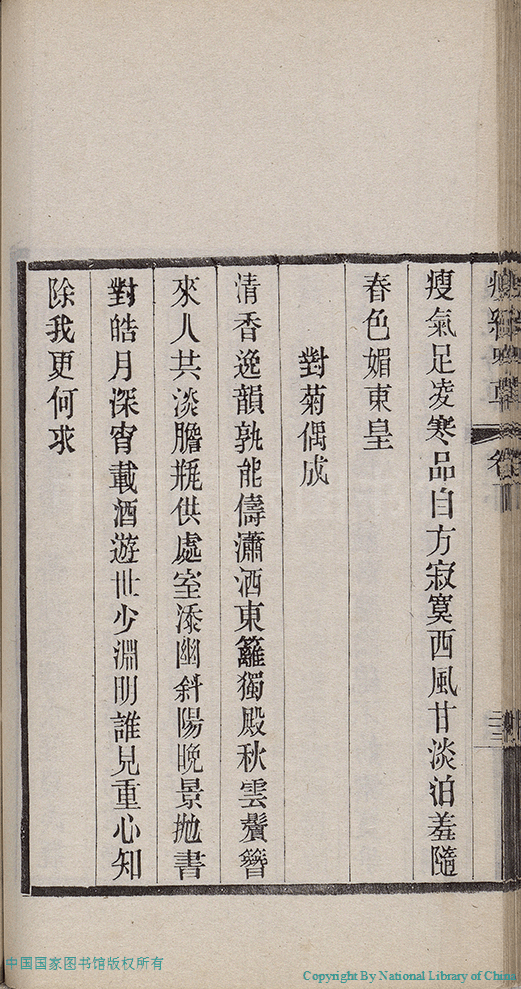 瘦氣足凌寒品自方寂寞西風甘淡泊羞隨
春色媚東皇
對菊偶成
清香逸韻孰能儔瀟洒東籬獨殿秋雲鬢簪
來人共淡膽瓶供處室添幽斜陽晚景抛書
對皓月深宵載酒遊世少淵明誰見重心知
除我更何求
中国国家图书馆版权所有
Copyright By National Library of China